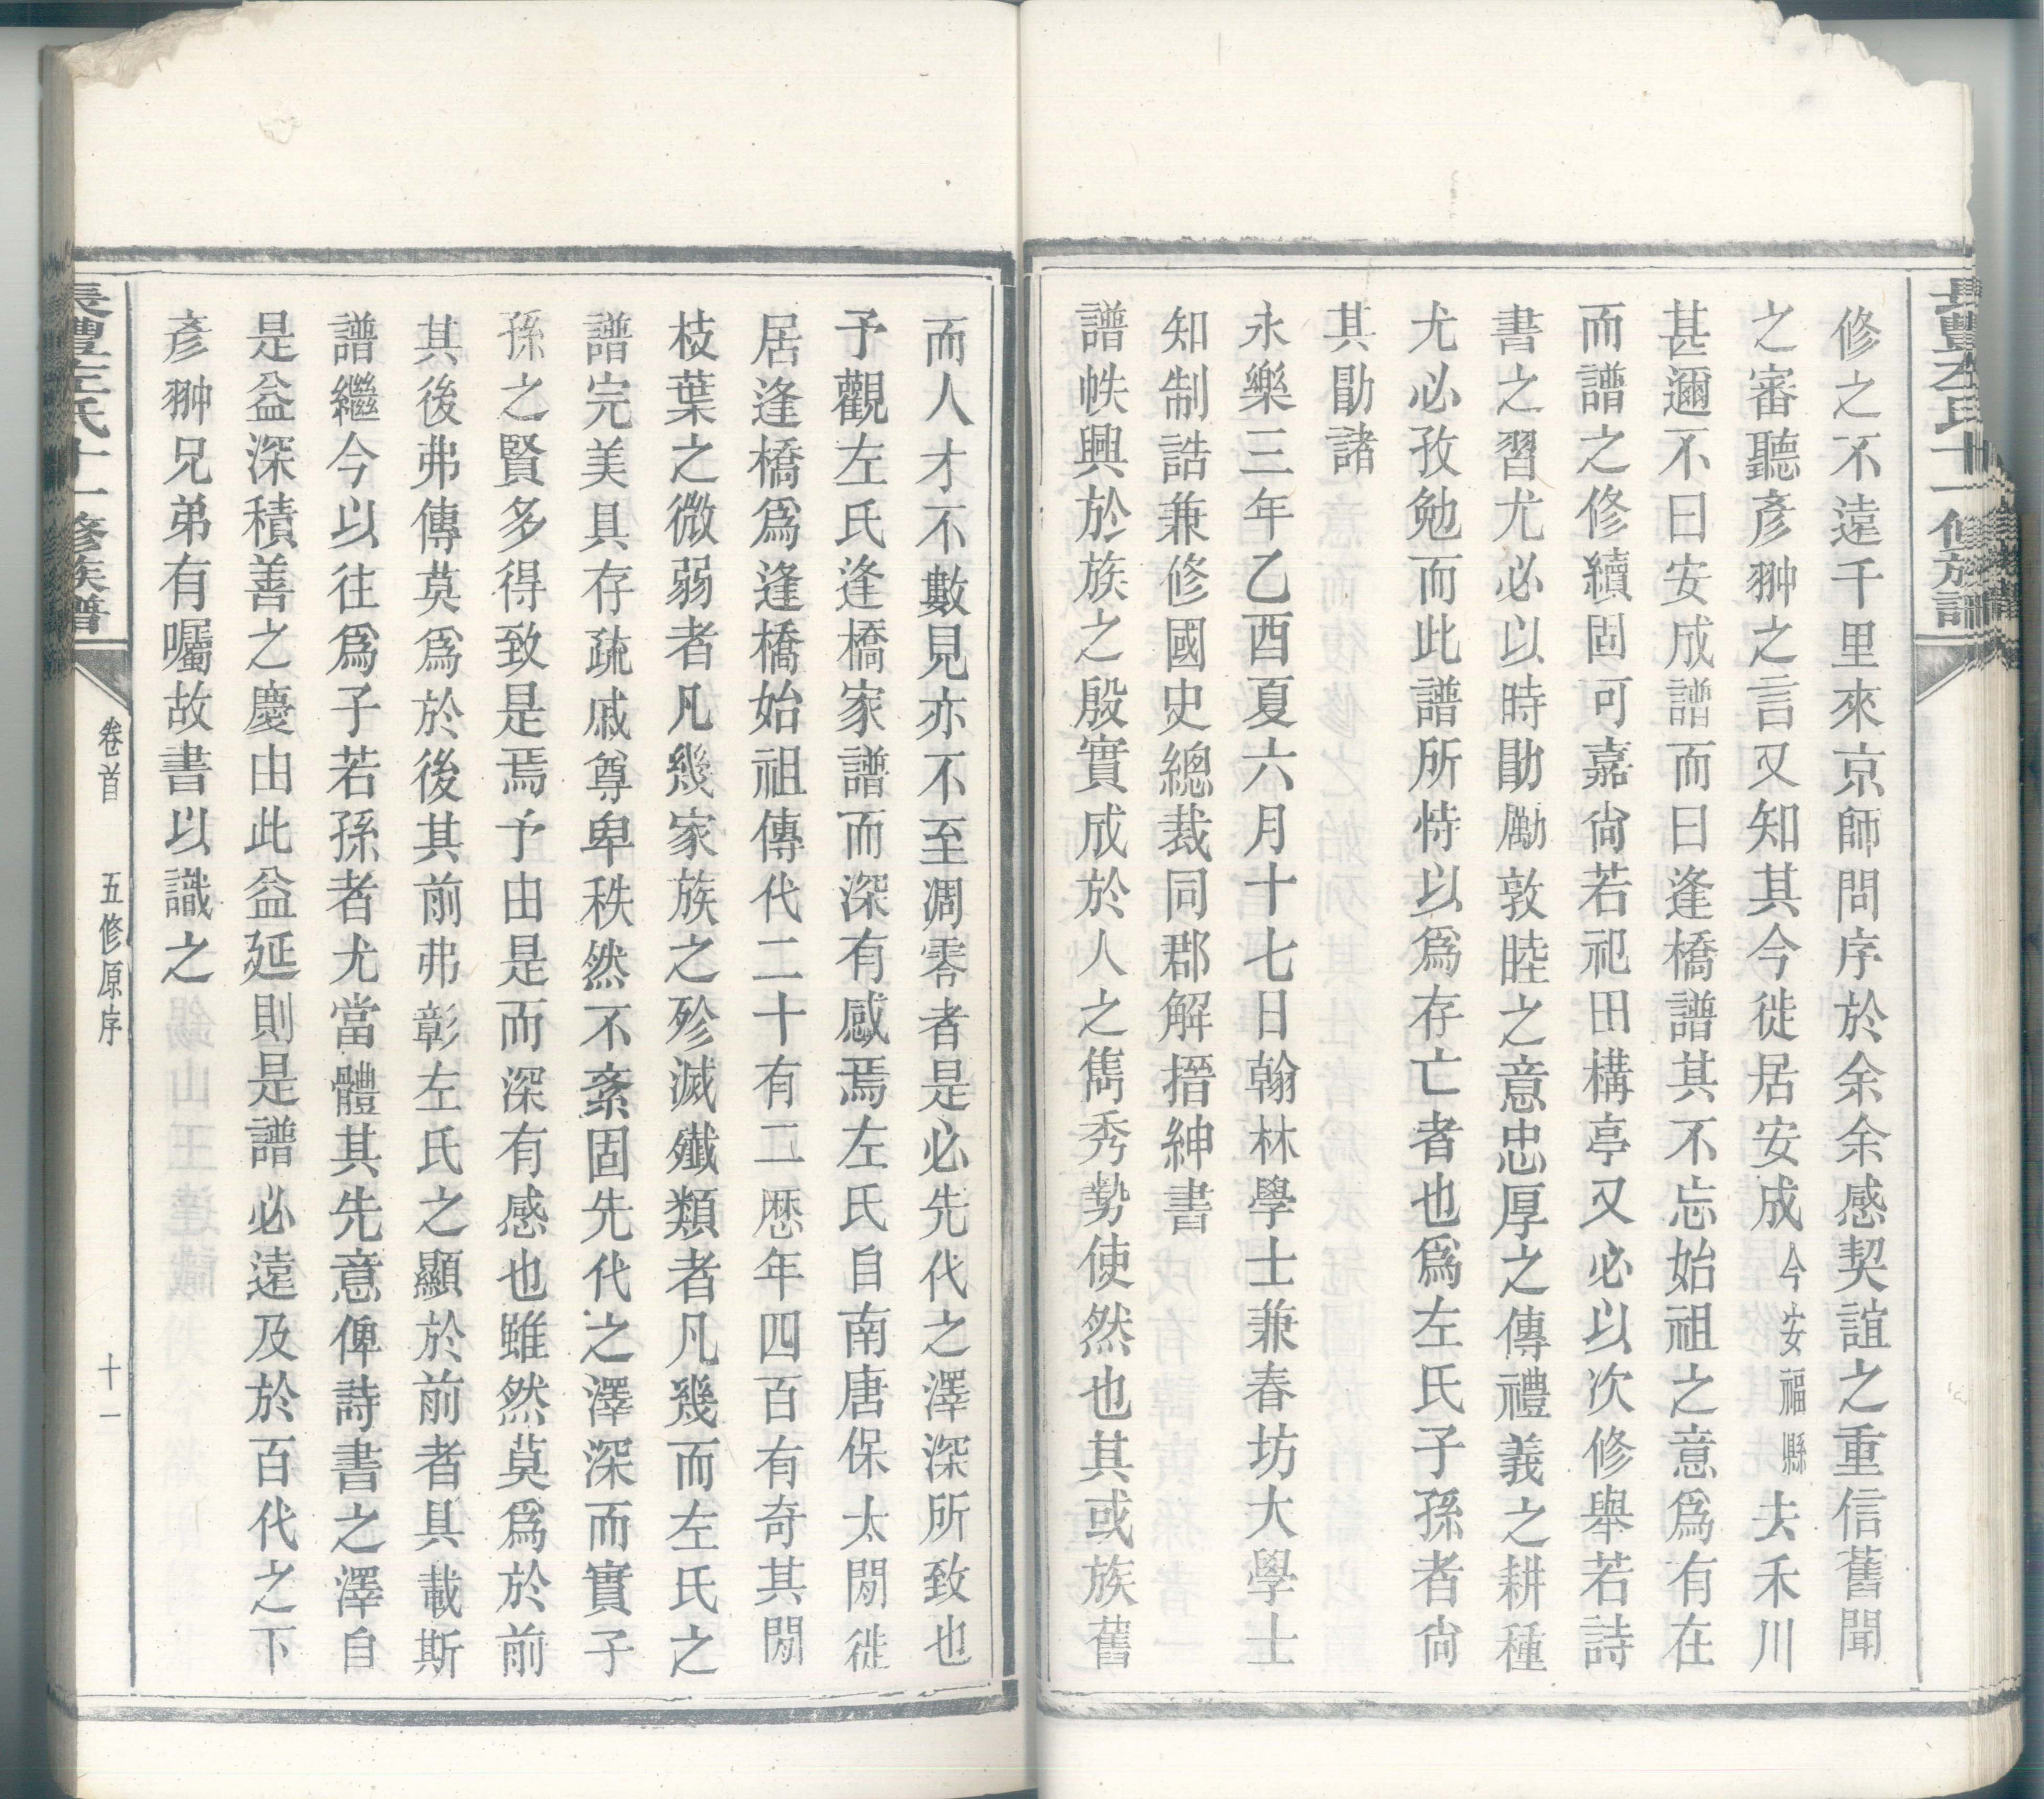 長豐左氏十一修族譜
修之不遠千里來京師問序於余余感契誼之重信舊聞
之審聽彥翀之言又知其今徙居安成今安福縣去禾川
甚邇不曰安成譜而曰逢橋譜其不忘始祖之意爲有在
而譜之修續固可嘉尙若祀田構亭又必以次修舉若詩
書之習尤必以時勖勵敦睦之意忠厚之傳禮義之耕種
尤必孜勉而此譜所恃以爲存亡者也爲左氏子孫者尙
其勖諸
永樂三年乙酉夏六月十七日翰林學士兼春坊大學士
知制誥兼修國史總裁同郡解搢紳書
譜帙興於族之殷實成於人之雋秀勢使然也其或族舊
而人才不數見亦不至凋零者是必先代之澤深所致也
予觀左氏逢橋家譜而深有感焉左氏自南唐保太閒徙
居逢橋爲逢橋始祖傳代二十有二歷年四百有奇其閒
枝葉之微弱者凡幾家族之殄滅殲類者凡幾而左氏之
譜完美具存疏戚尊卑秩然不紊固先代之澤深而實子
孫之賢多得致是焉予由是而深有感也雖然莫爲於前
其後弗傳莫爲於後其前弗彰左氏之顯於前者具載斯
譜繼今以往爲子若孫者尤當體其先意俾詩書之澤自
是益深積善之慶由此益延則是譜必遠及於百代之下
彥翀兄弟有囑故書以識之
長豐左氏十一修族譜
卷首 五修原序 十一